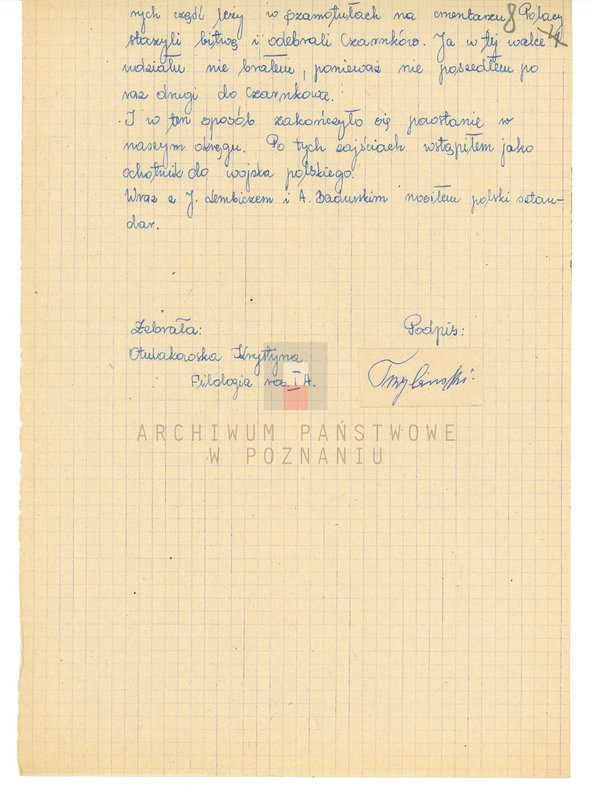 nych część leży w Szamotułach na cmentarzu. Polacy
8
4
stoczyli bitwę i odebrali Czarnków. Ja w tej walce
udziału nie brałem, ponieważ nie poszedłem po
raz drugi do Czarnkowa.
I w ten sposób zakończyło się powstanie w
naszym okręgu. Po tych zajściach wstąpiłem jako
ochotnik do wojska polskiego.
Wraz z J. Lembiczem i A. Badurskim nosiłem polski sztan-
dar.
Zebrała: Podpis:
Krystyna
Filologia rok I A.
ARCHIWUM PAŃSTWOWE
W POZNANIU